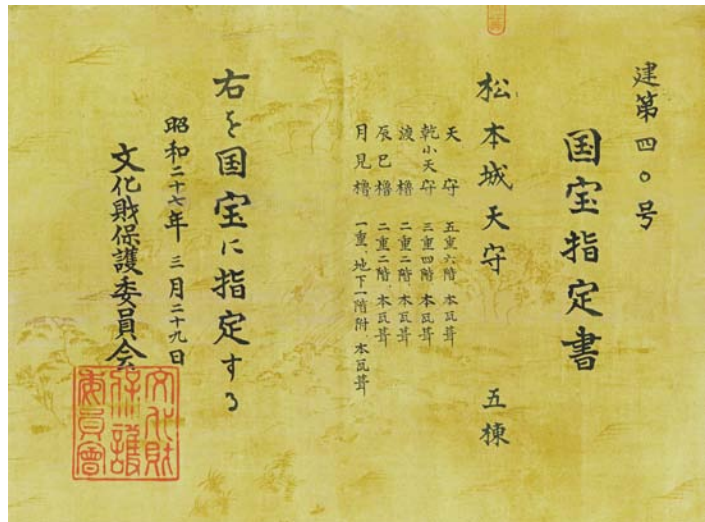 建第四〇号
国宝指定書
松本城天守 五棟
天守 五重六階、本瓦葺
乾小天守 三重四階、本瓦葺
渡櫓 二重二階、本瓦葺
辰巳櫓 二重二階、本瓦葺
月見櫓 一重、地下一階附、本瓦葺
右を国宝に指定する
昭和二十七年三月二十九日
文化財保護委員会
文化財
保護
委員會